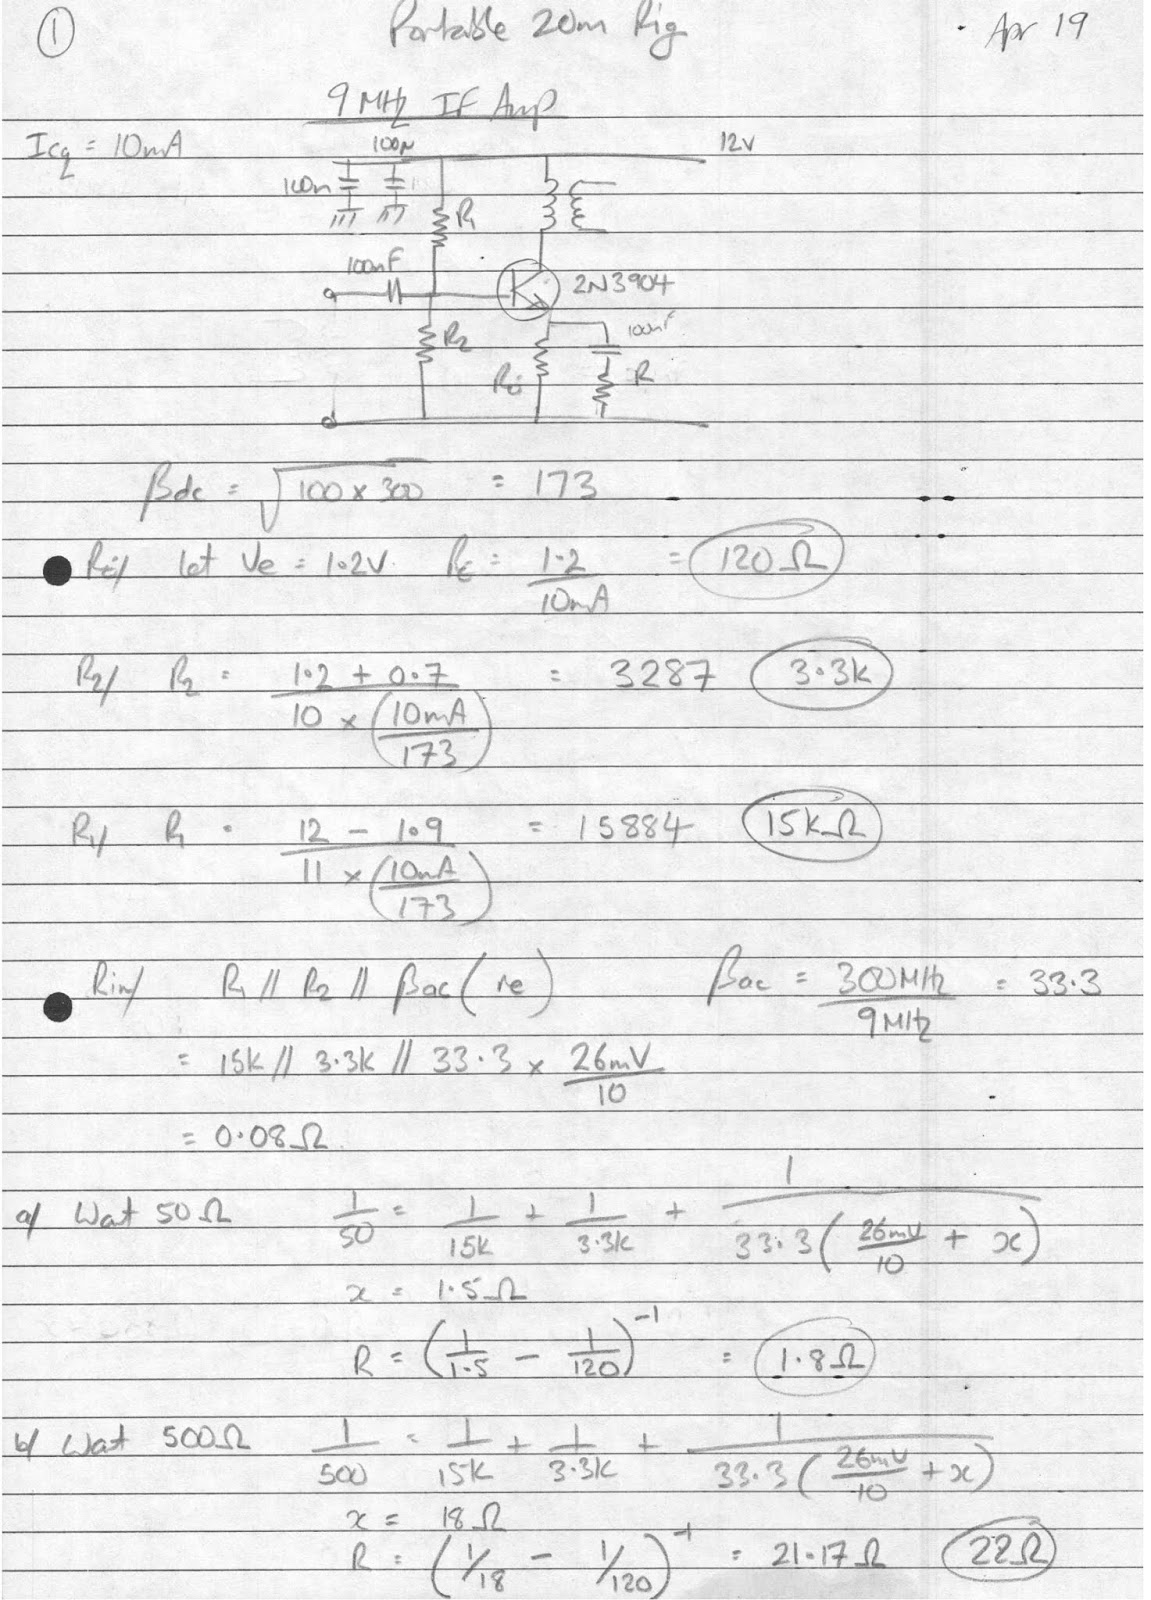 ① Portable 20m Rig Apr 19
9MHz IF Amp
Icq = 10mA
100n 12V
100n
R1
100nF
2N3904
R2 100nF
RE R
βdc = √100 x 300 = 173
RE/ let Ve = 1.2V. RE = 1.2 / 10mA = 120Ω
R2/ R2 = 1.2 + 0.7 / 10 x (10mA / 173) = 3287 3.3k
R1/ R1 = 12 - 1.9 / 11 x (10mA / 173) = 15884 15kΩ
Rin/ R1 // R2 // βac (re) βac = 300MHz / 9MHz = 33.3
= 15k // 3.3k // 33.3 x 26mV / 10
= 0.08Ω
a/ Wat 50Ω 1/50 = 1/15k + 1/3.3k + 1 / 33.3 (26mV / 10 + x)
x = 1.5Ω
R = (1/1.5 - 1/120)^-1 = 1.8Ω
b/ Wat 500Ω 1/500 = 1/15k + 1/3.3k + 1 / 33.3 (26mV / 10 + x)
x = 18Ω
R = (1/18 - 1/120)^-1 = 21.17Ω 22Ω